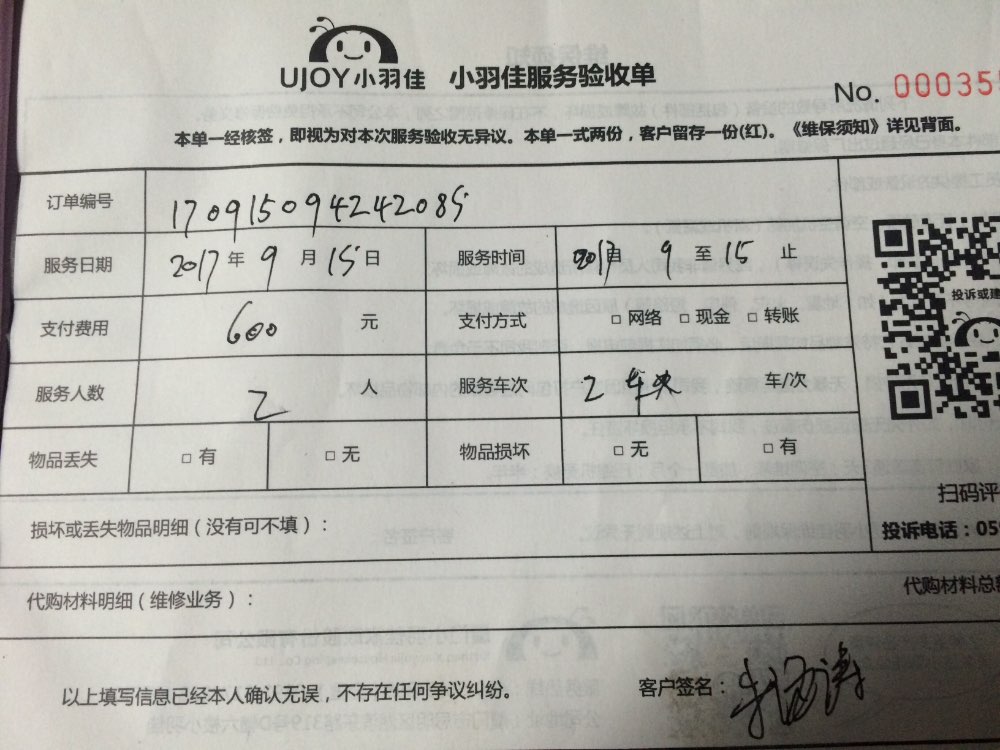 UJOY小羽佳 小羽佳服务验收单
No. 000355
本单一经核签，即视为对本次服务验收无异议。本单一式两份，客户留存一份(红)。《维保须知》详见背面。
订单编号 170915094242085
服务日期 2017 年 9 月 15 日 服务时间 2017 自 9 至 15 止
支付费用 600 元 支付方式 □ 网络 □ 现金 □ 转账
投诉或建
服务人数 2 人 服务车次 2 车次 车/次
物品丢失 □ 有 □ 无 物品损坏 □ 无 □ 有
扫码评
损坏或丢失物品明细（没有可不填）：
投诉电话：059
代购材料明细（维修业务）：
代购材料总额
以上填写信息已经本人确认无误，不存在任何争议纠纷。 客户签名：